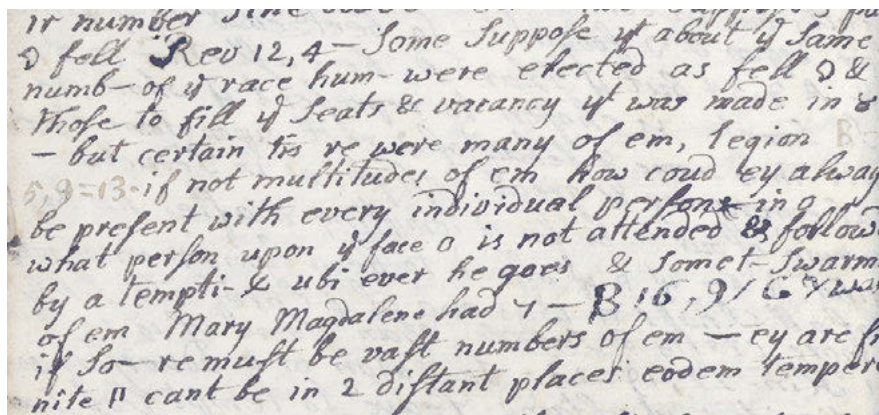 ir number
Ɔ fell Rev 12, 4 – Some Suppose yt about ye Same
numb– of ye race hum– were erected as fell Ɔ &
those to fill ye Seats & vacancy yt was made in 8
– but certain tis re were many of em, legion B
5, 9=13. if not multitudes of em how coud ey alway
be present with every individual person in o
what person upon ye face o is not attended & follow
by a tempti– & ubi ever he goes & Somet– Swarm
of em Mary Magdalene had 7 – B 16, 9/
if So– re must be vast numbers of em – ey are fi
nite II cant be in 2 distant places eodem tempor